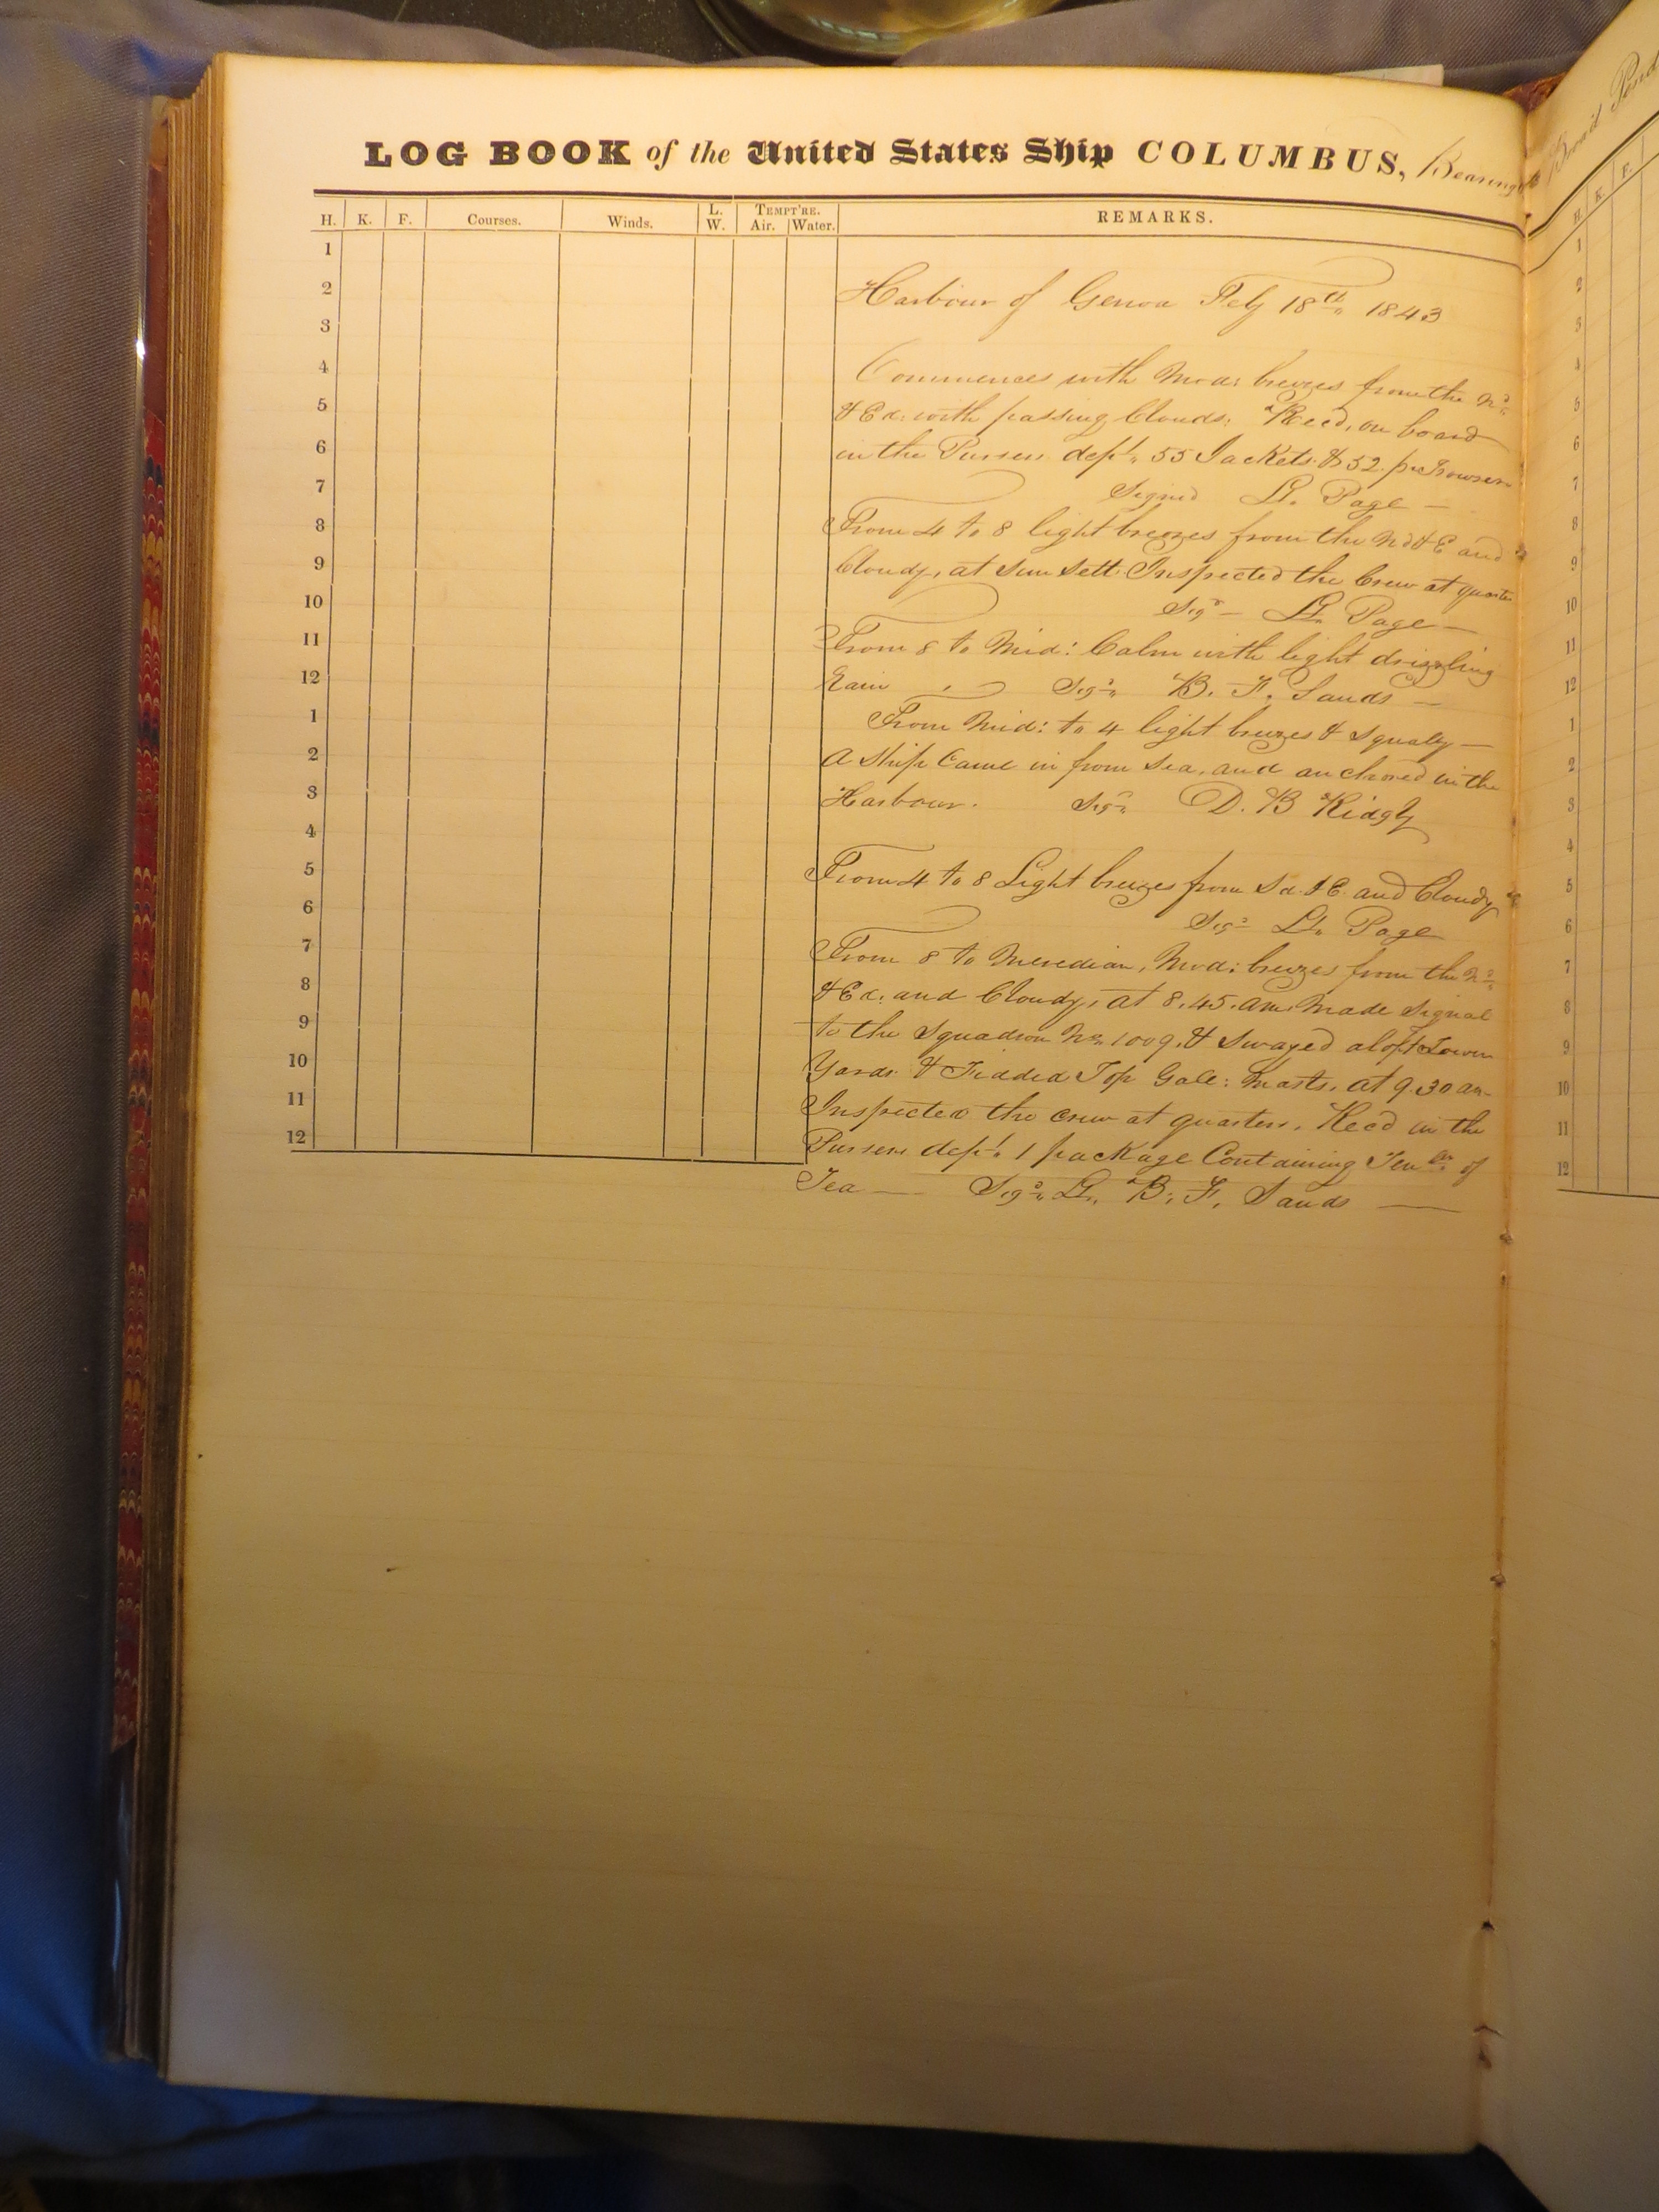 LOG BOOK of the United States Ship COLUMBUS, Bearing the
H. K. F. Courses. Winds. L. W. TEMPT'RE. Air. Water. REMARKS.
1
2
3
4
5
6
7
8
9
10
11
12
1
2
3
4
5
6
7
8
9
10
11
12
Harbour of Genoa Feby 18th 1843
Commences with Mod: breezes from the Nd
& Ed: with passing Clouds: Recd, on board
in the Pursers dept. 55 Jackets & 52 pr Trowsers
Signed Lt. Page —
From 4 to 8 light breezes from the Nd & E and
Cloudy, at Sun Sett Inspected the Crew at quarters
Sigd — Lt. Page —
From 8 to Mid: Calm with light drizzling
Rain Sigd B. F. Sands —
From Mid: to 4 light breezes & Squaly —
A Ship Came in from Sea, and anchored in the
Harbour. Sigd D. B Ridgly
From 4 to 8 Light breezes from Sd & E. and Cloudy
Sigd Lt. Page
From 8 to Meredian, Mod: breezes from the Nd
& Ed. and Cloudy, at 8.45. am. Made Signal
to the Squadron No. 1009. & Swayed aloft Lower
Yards & Fidded Top Gale: Masts, at 9.30 am
Inspected the crew at quarters. Recd in the
Pursers dept. 1 package Containing Ten lbs of
Tea — Sigd Lt. B. F. Sands —
Broad Pend
H. K. F.
1
2
3
4
5
6
7
8
9
10
11
12
1
2
3
4
5
6
7
8
9
10
11
12